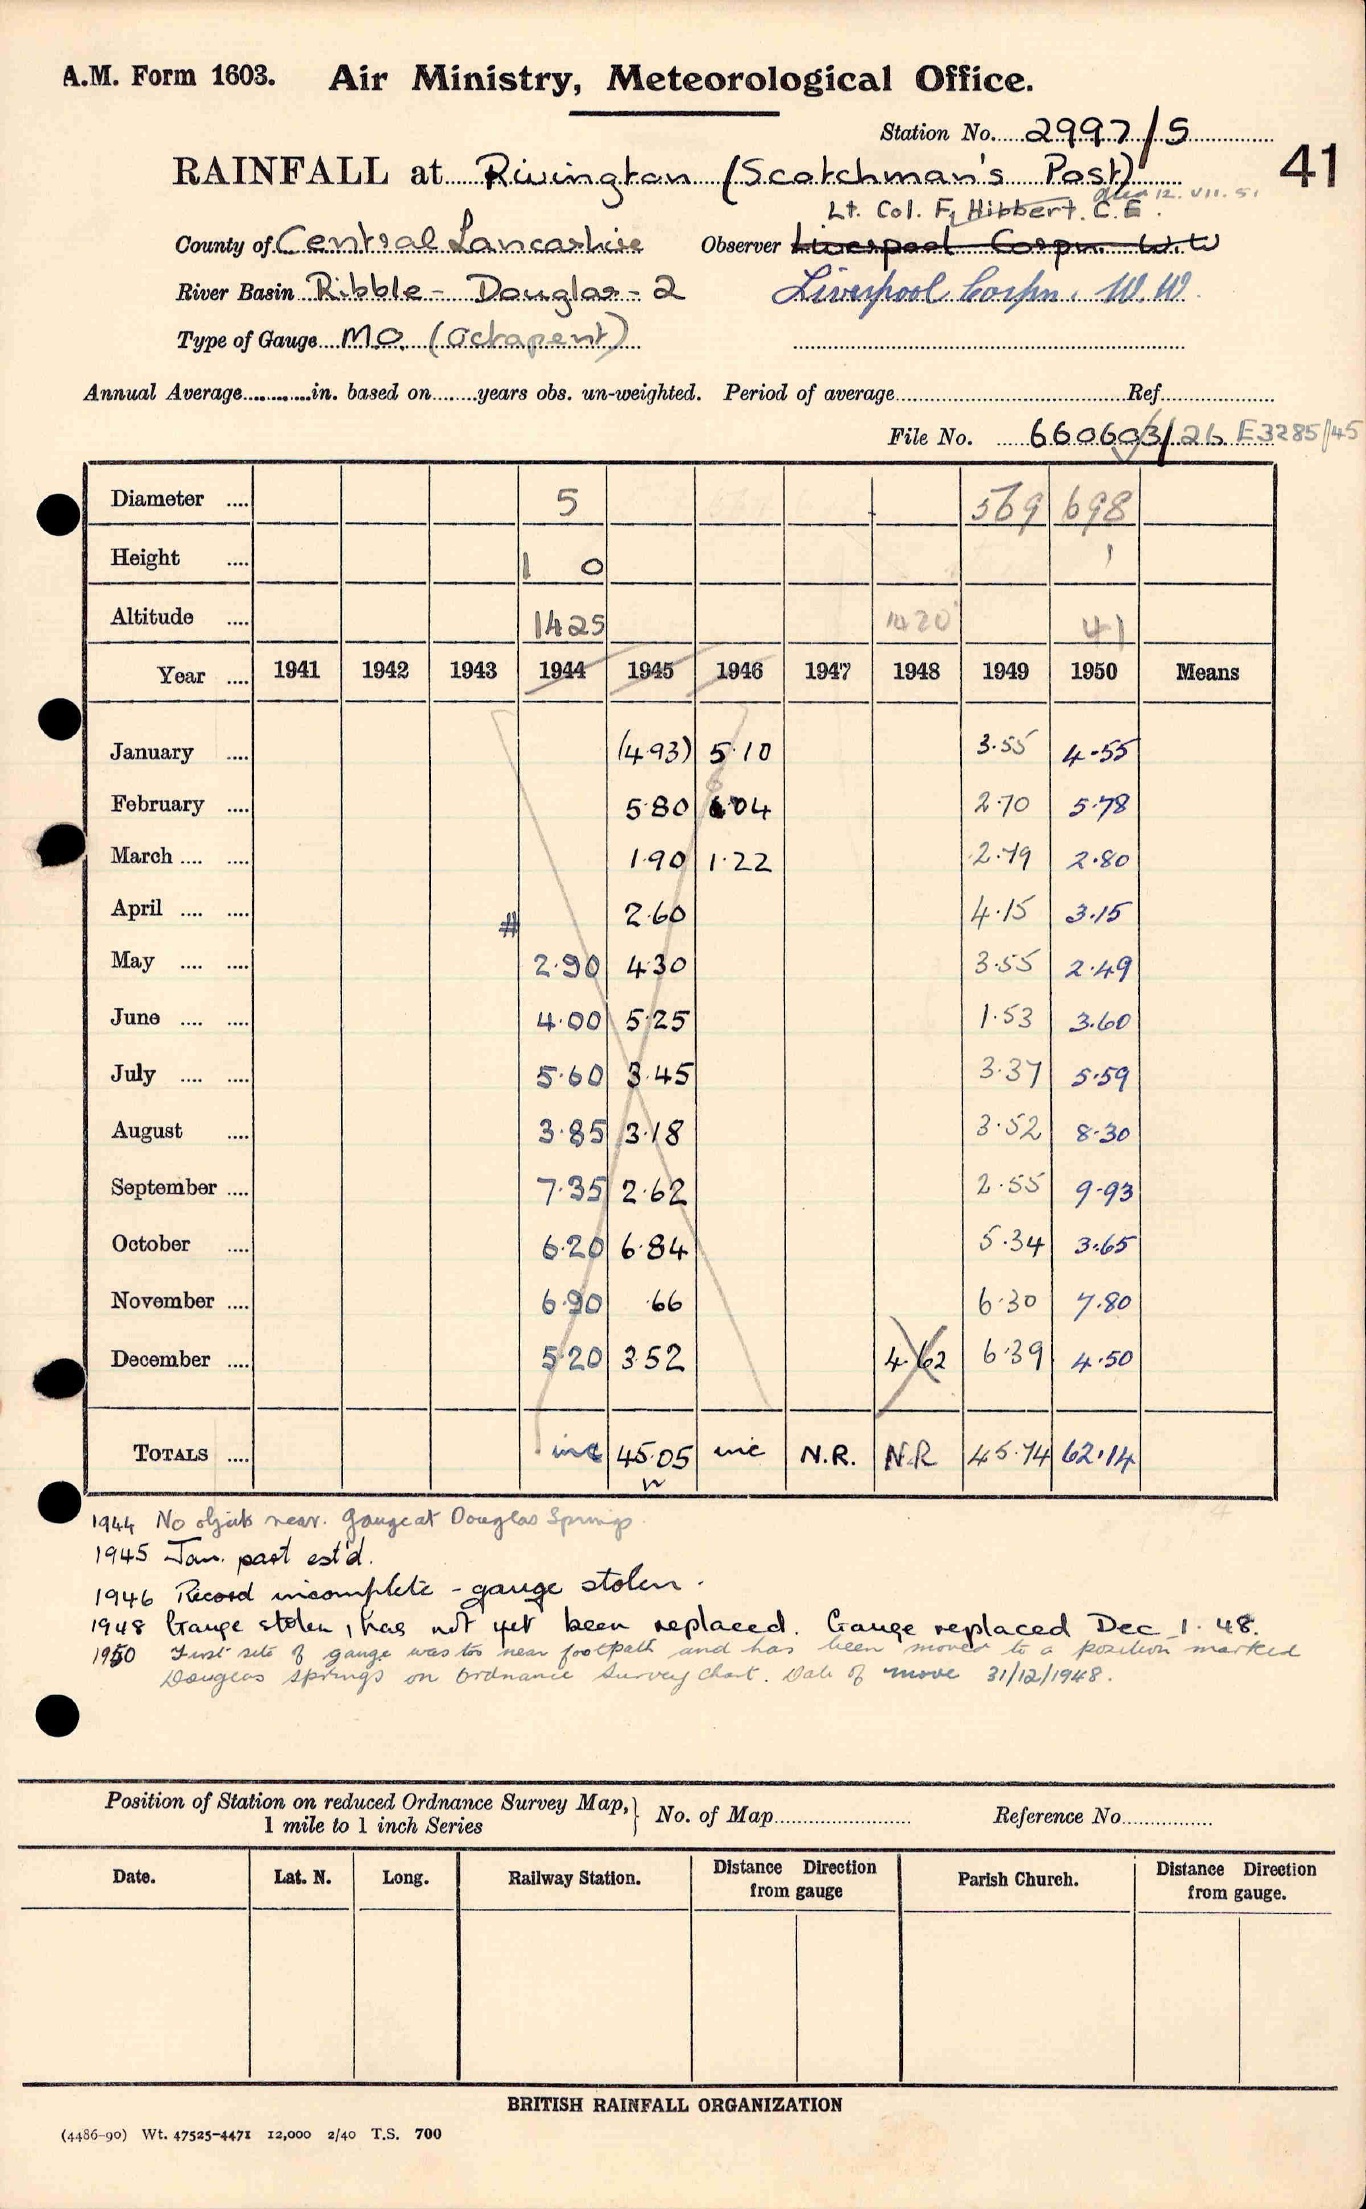 A.M. Form 1603. Air Ministry, Meteorological Office.
Station No. 2997/5
41
RAINFALL at Rivington (Scotchman's Post)
12. VII. 51
Lt. Col. F. Hibbert. C.E.
County of Central Lancashire Observer Liverpool Corpn. W.W
River Basin Ribble - Douglas - 2 Liverpool Corpn. W.W.
Type of Gauge M.O. (Octapent)
Annual Average in. based on years obs. un-weighted. Period of average Ref.
File No. 660603/26 E3285/45
Diameter 5 569 698
Height 1 0 1
Altitude 1425 1420 41
Year 1941 1942 1943 1944 1945 1946 1947 1948 1949 1950 Means
January (4.93) 5.10 3.55 4.55
February 5.80 6.04 2.70 5.78
March 1.90 1.22 2.79 2.80
April # 2.60 4.15 3.15
May 2.90 4.30 3.55 2.49
June 4.00 5.25 1.53 3.60
July 5.60 3.45 3.37 5.59
August 3.85 3.18 3.52 8.30
September 7.35 2.62 2.55 9.93
October 6.20 6.84 5.34 3.65
November 6.90 .66 6.30 7.80
December 5.20 3.52 4.62 6.39 4.50
TOTALS inc 45.05 inc N.R. N.R 45.74 62.14
1944 No objects near. Gauge at Douglas Springs.
1945 Jan. part est'd.
1946 Record incomplete - gauge stolen.
1948 Gauge stolen, has not yet been replaced. Gauge replaced Dec 1. 48.
1950 First site of gauge was too near footpath and has been moved to a position marked
Douglas springs on Ordnance Survey Chart. Date of move 31/12/1948.
Position of Station on reduced Ordnance Survey Map, 1 mile to 1 inch Series } No. of Map Reference No.
Date. Lat. N. Long. Railway Station. Distance Direction from gauge Parish Church. Distance Direction from gauge.
BRITISH RAINFALL ORGANIZATION
(4486-90) Wt. 47525-4471 12,000 2/40 T.S. 700